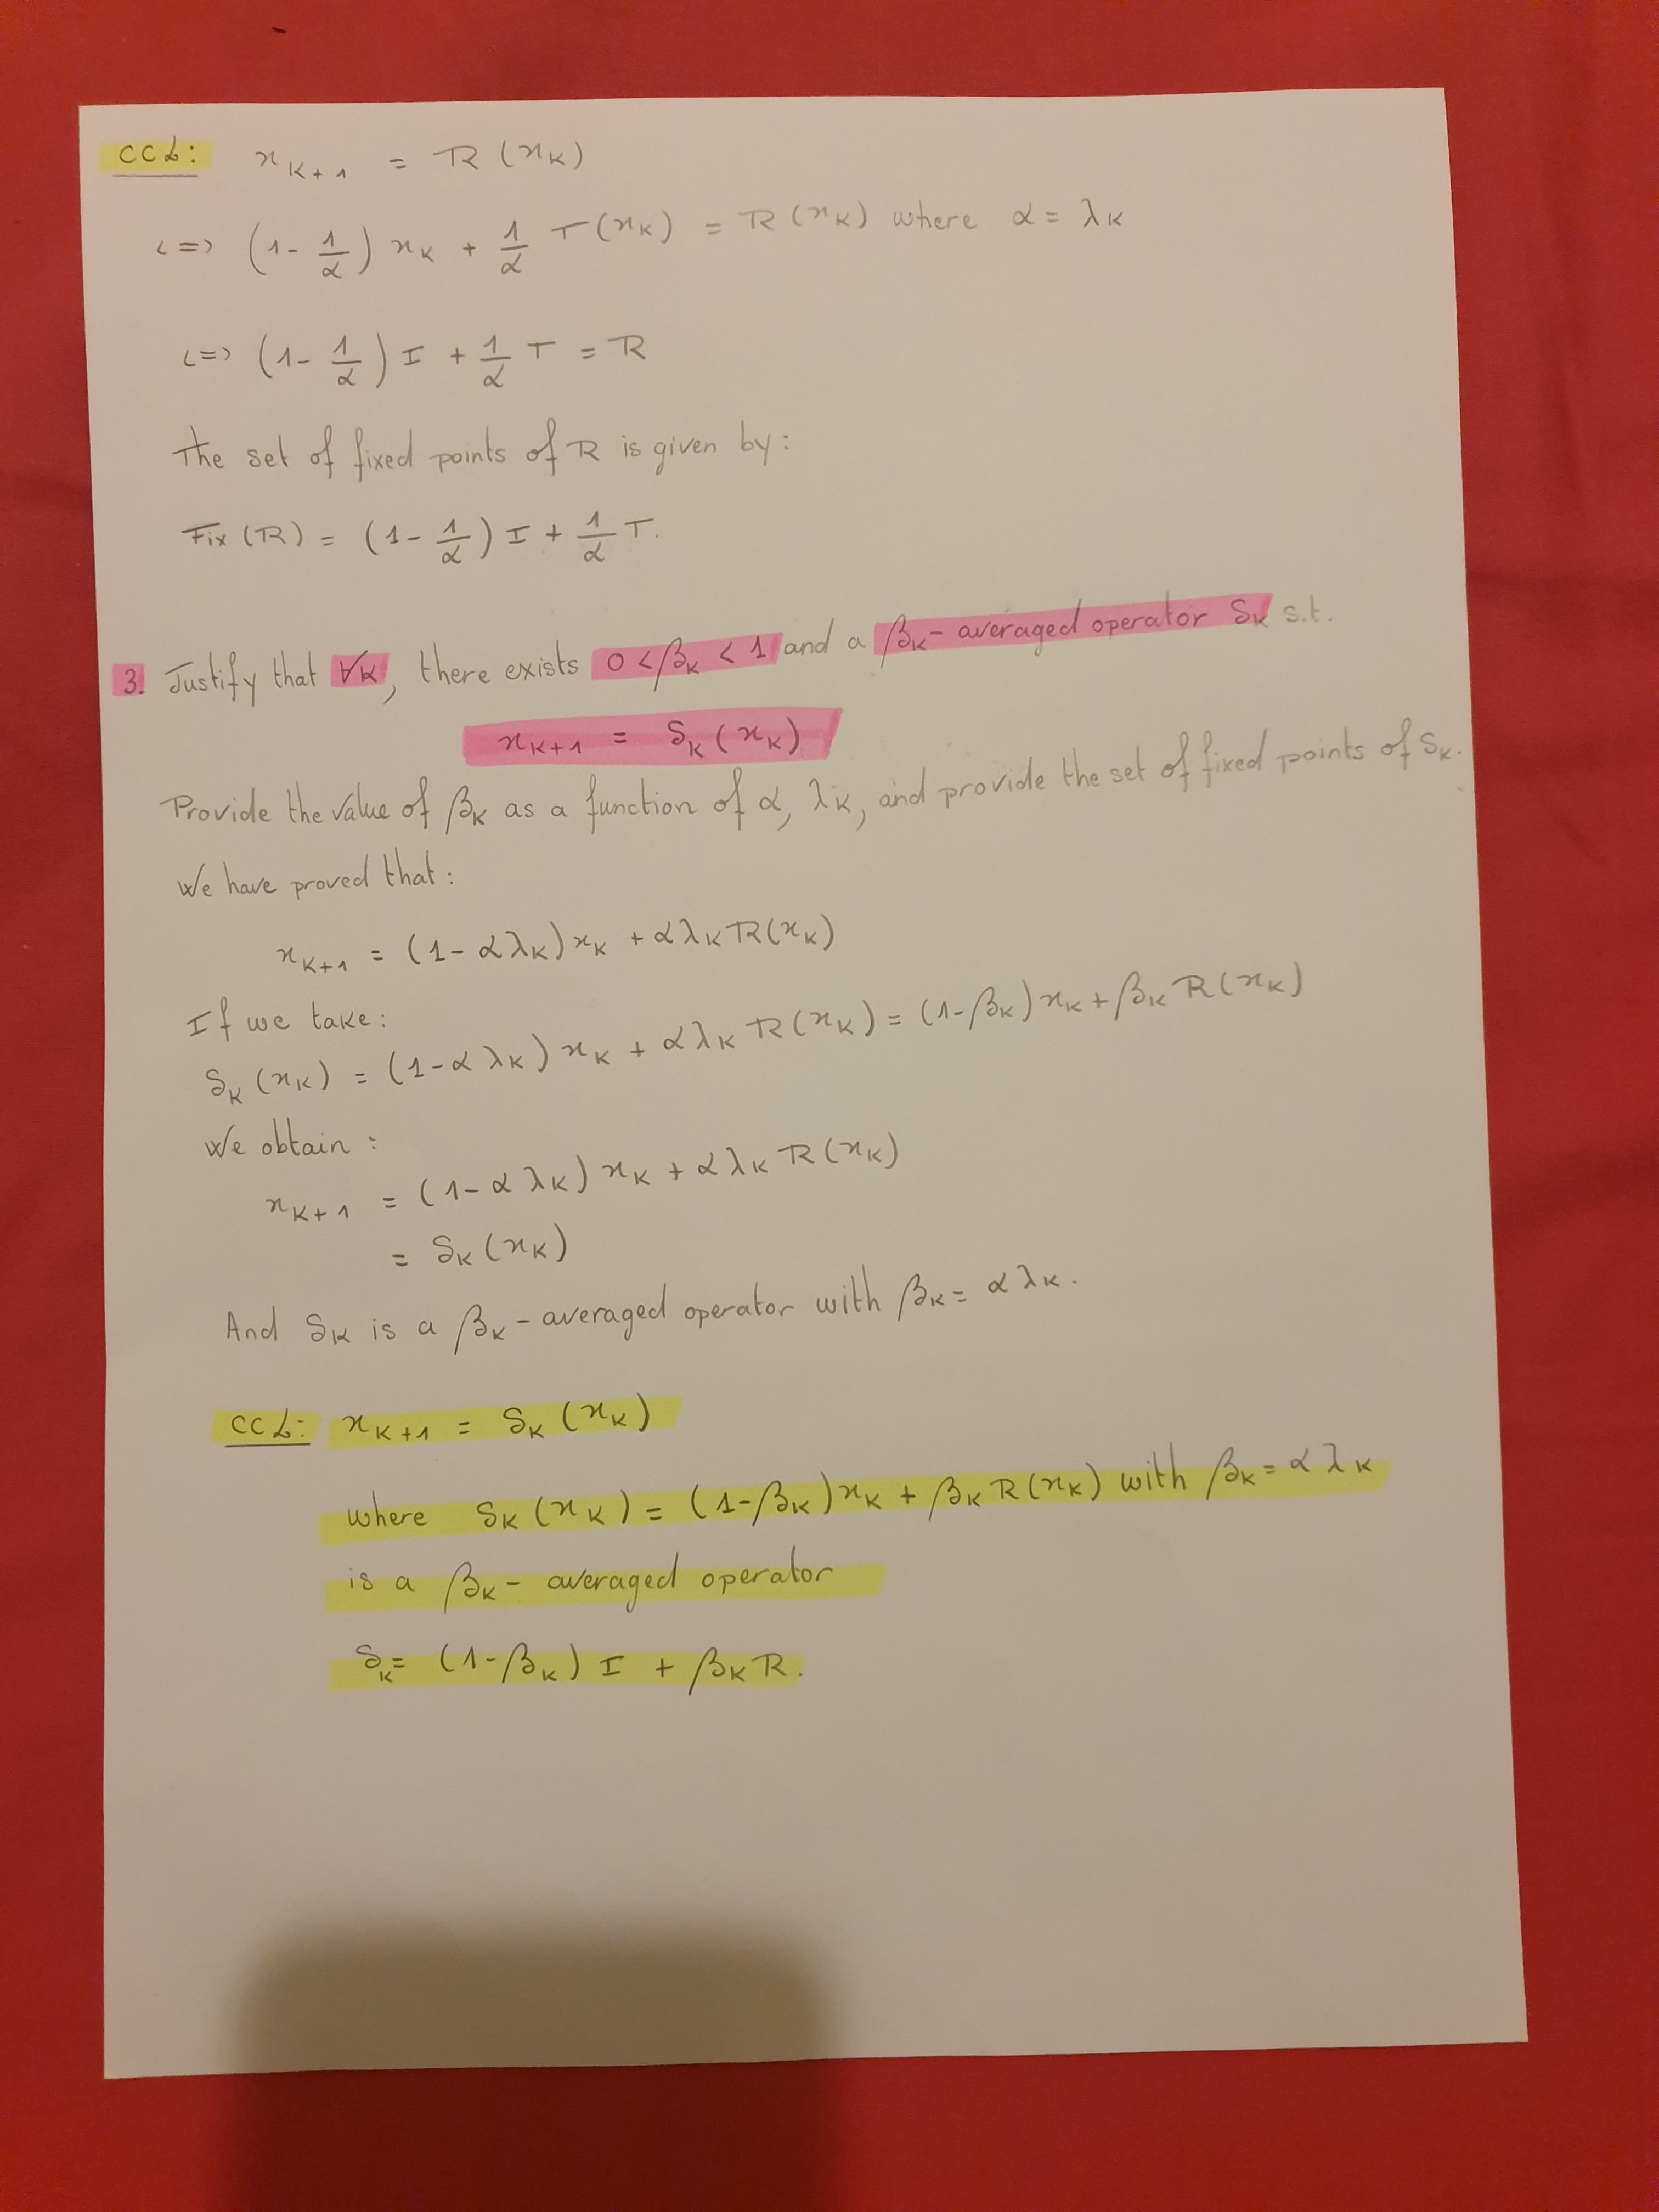 CCL: x_{K+1} = R(x_K)
<=> (1 - 1/α) x_K + 1/α T(x_K) = R(x_K) where α = λ_K
<=> (1 - 1/α) I + 1/α T = R
The set of fixed points of R is given by:
Fix(R) = (1 - 1/α) I + 1/α T.
3. Justify that ∀K, there exists 0 < β_K < 1 and a β_K - averaged operator S_K s.t.
x_{K+1} = S_K(x_K)
Provide the value of β_K as a function of α, λ_K, and provide the set of fixed points of S_K.
We have proved that:
x_{K+1} = (1 - αλ_K) x_K + αλ_K R(x_K)
If we take:
S_K(x_K) = (1 - αλ_K) x_K + αλ_K R(x_K) = (1 - β_K) x_K + β_K R(x_K)
We obtain:
x_{K+1} = (1 - αλ_K) x_K + αλ_K R(x_K)
= S_K(x_K)
And S_K is a β_K - averaged operator with β_K = αλ_K.
CCL: x_{K+1} = S_K(x_K)
where S_K(x_K) = (1 - β_K) x_K + β_K R(x_K) with β_K = αλ_K
is a β_K - averaged operator
S_K = (1 - β_K) I + β_K R.